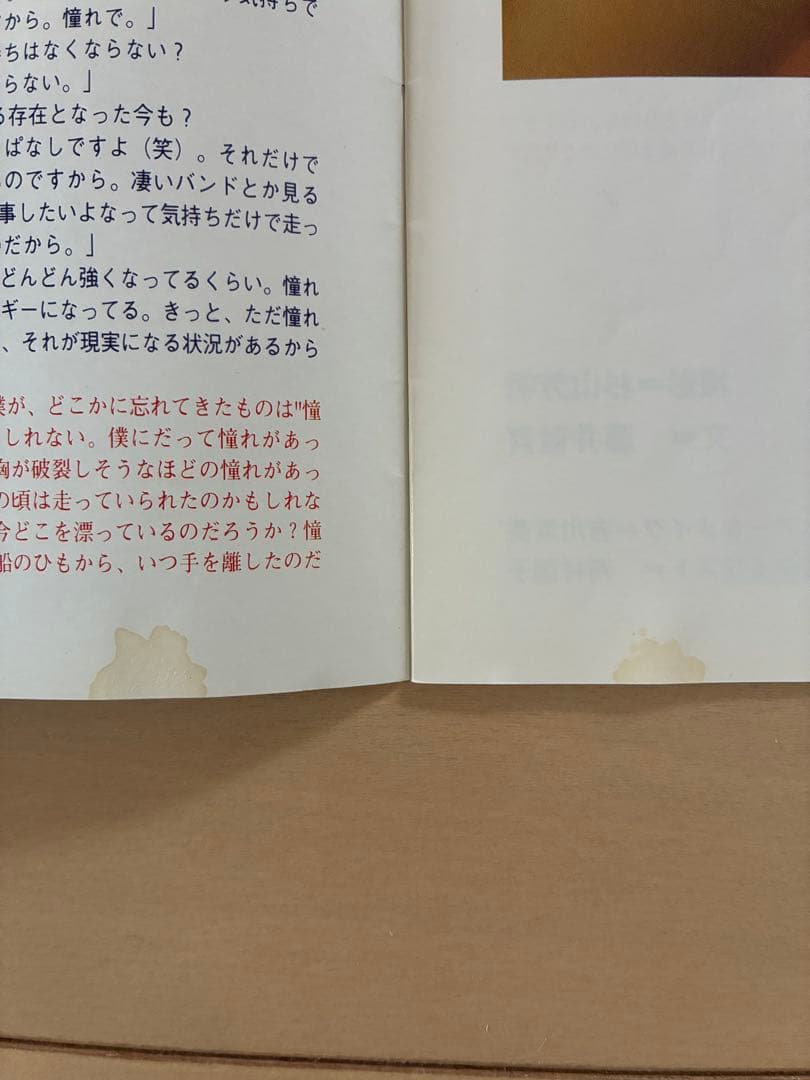 から。憧れで。」
ちはなくならない？
らない。」
る存在となった今も？
ぱなしですよ（笑）。それだけで
のですから。凄いバンドとか見る
事したいよなって気持ちだけで走っ
だから。」
どんどん強くなってるくらい。憧れ
ギーになってる。きっと、ただ憧れ
、それが現実になる状況があるから
僕が、どこかに忘れてきたものは"憧
しれない。僕にだって憧れがあっ
胸が破裂しそうなほどの憧れがあっ
の頃は走っていられたのかもしれな
今どこを漂っているのだろうか？憧
船のひもから、いつ手を離したのだ